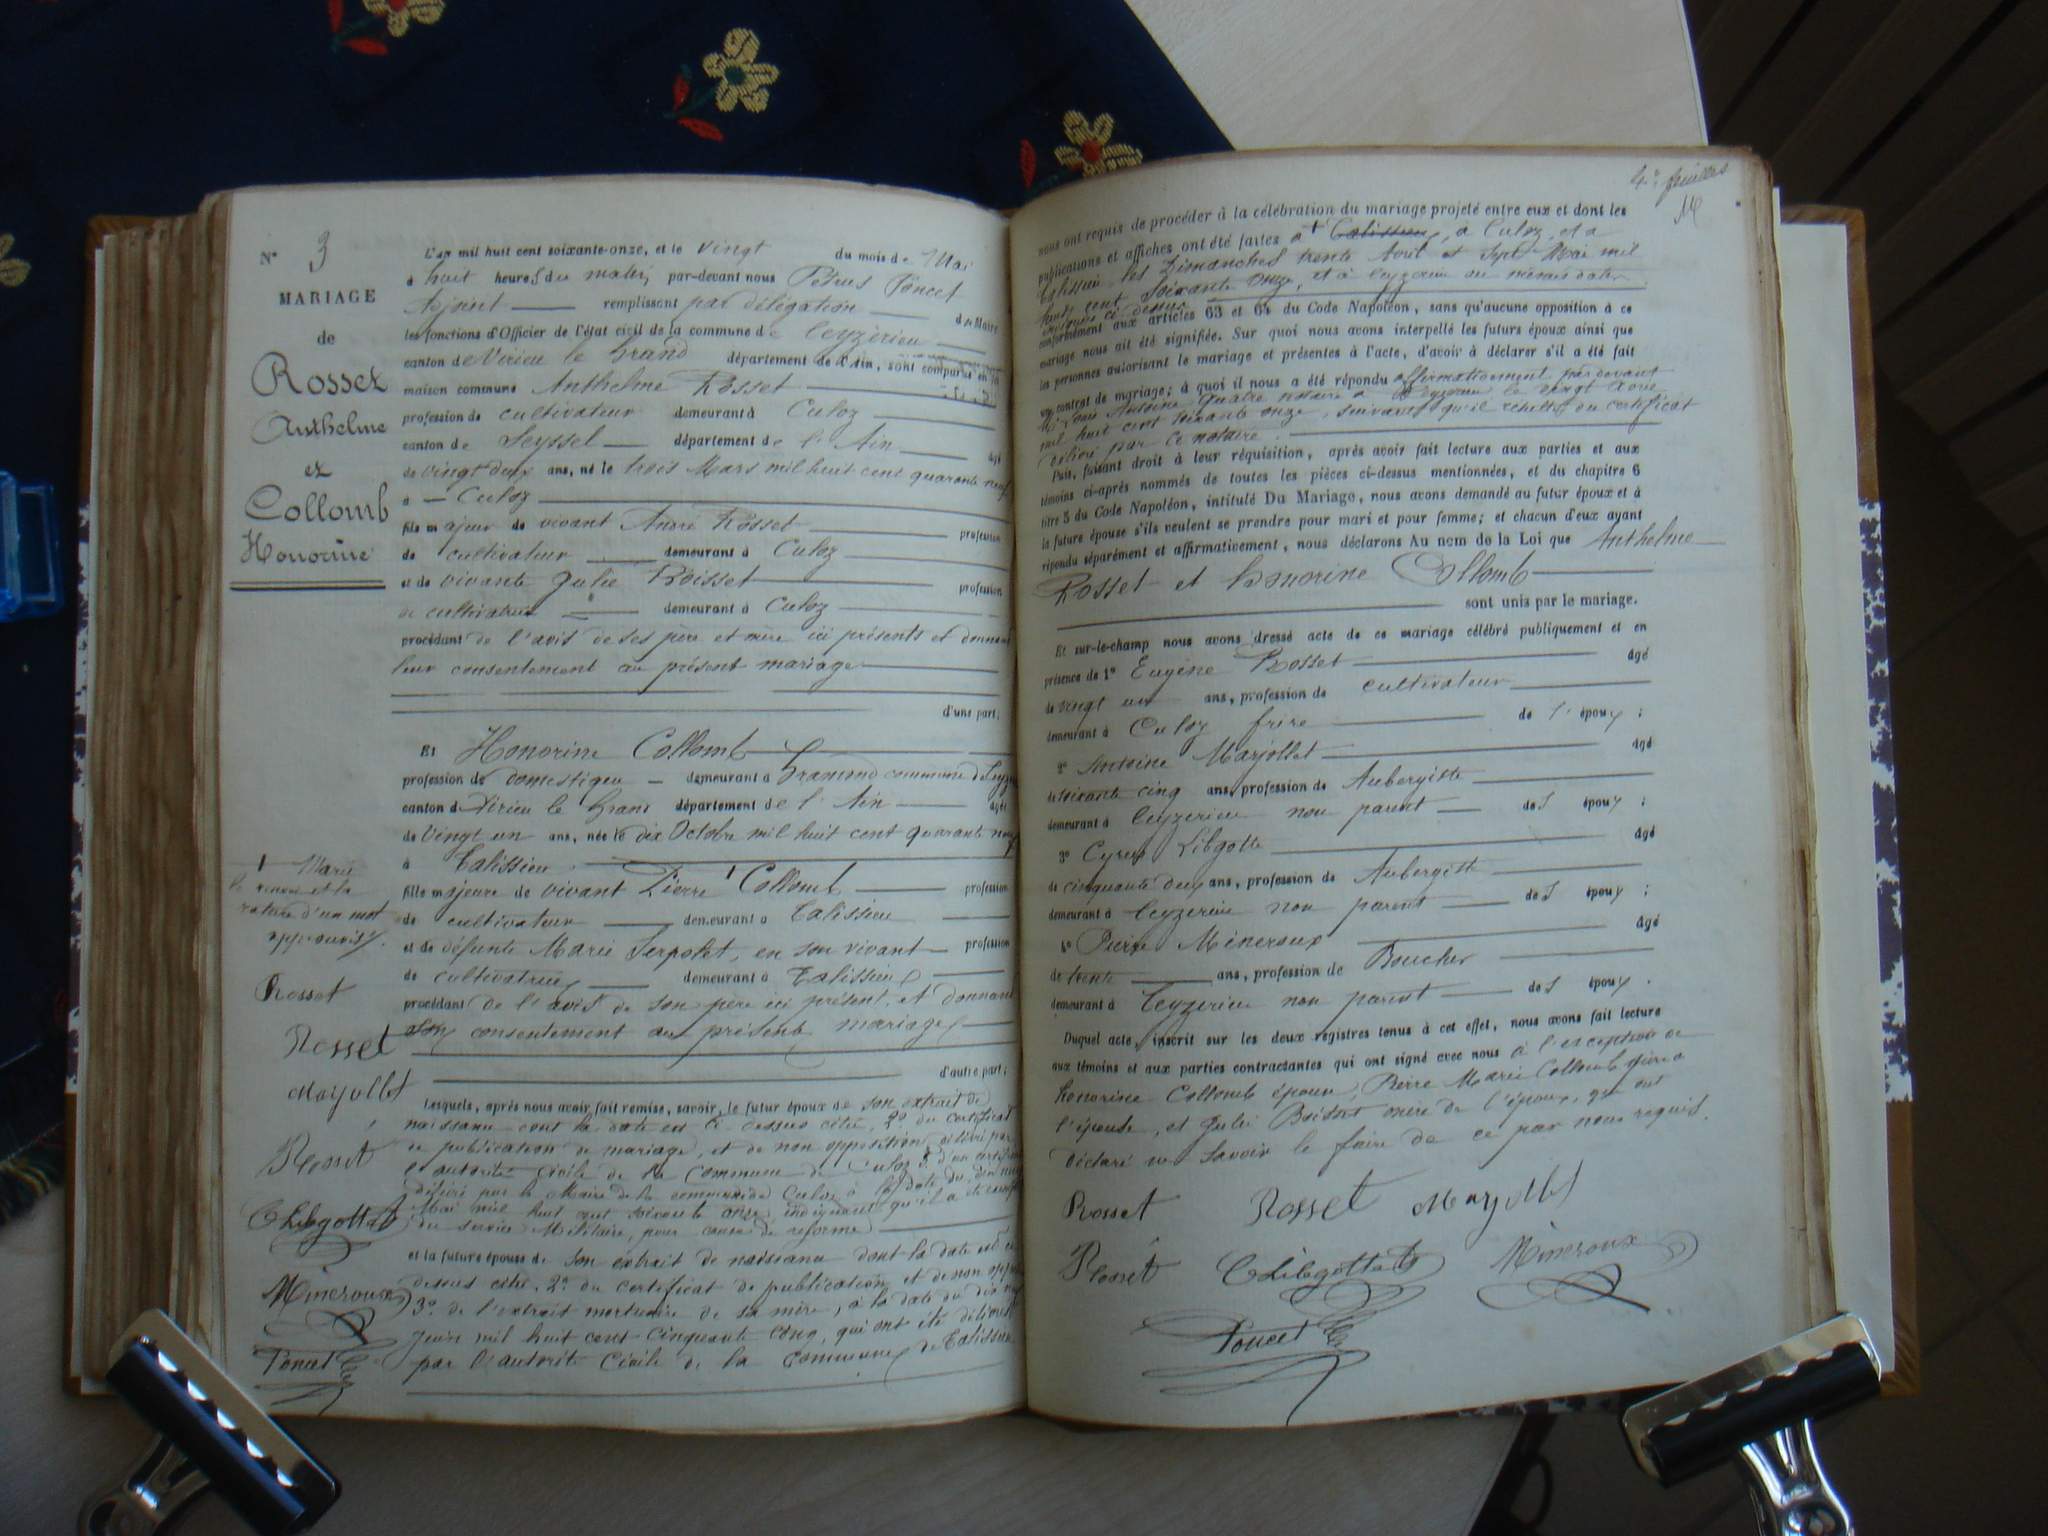 N° 3
MARIAGE
de
Rosset
Anthelme
et
Collomb
Honorine
L'an mil huit cent soixante-onze, et le vingt du mois de Mai
à huit heures du matin, par-devant nous Pétrus Poncet
Adjoint remplissant par délégation du Maire
les fonctions d'Officier de l'état civil de la commune de Ceyzérieu
canton de Virieu le Grand département de l'Ain, sont comparus en la
maison commune Anthelme Rosset
profession de cultivateur demeurant à Culoz
canton de Seyssel département de l'Ain âgé
de vingt deux ans, né le trois Mars mil huit cent quarante neuf
à Culoz
fils majeur de vivant André Rosset profession
de cultivateur demeurant à Culoz
et de vivante Julie Boisset profession
de cultivatrice demeurant à Culoz
procédant de l'avis de ses père et mère ici présents et donnant
leur consentement au présent mariage
d'une part;
Et Honorine Collomb
profession de domestique demeurant à commune de
canton de Virieu le Grand département de l'Ain âgée
de vingt un ans, née le dix Octobre mil huit cent quarante neuf
à Talissieu
fille majeure de vivant Pierre Collomb profession
de cultivateur demeurant à Talissieu
et de défunte Marie Serpolet, en son vivant profession
de cultivatrice demeurant à Talissieu
procédant de l'avis de son père ici présent, et donnant
son consentement au présent mariage
d'autre part;
Lesquels, après nous avoir fait remise, savoir, le futur époux de son extrait de
naissance dont la date est ci dessus citée, 2° du certificat
de publication de mariage, et de non opposition, délivré par
l'autorité civile de la Commune de Culoz 3° d'un certificat
délivré par le Maire de la commune de Culoz à la date du
Mai mil huit cent soixante onze, indiquant qu'il a été
du service Militaire, pour cause de réforme
et la future épouse de son extrait de naissance dont la date est ci
dessus citée, 2° du certificat de publication et de non
3° de l'extrait mortuaire de sa mère, à la date du dix
Juin mil huit cent cinquante cinq, qui ont été délivrés
par l'autorité Civile de la Commune de Talissieu
1 Marie
le renvoi et la
rature d'un mot
approuvés.
Rosset
Rosset
Marjollet
Rosset
C Libgotte
Mineroux
Poncet
4e feuillet
M
nous ont requis de procéder à la célébration du mariage projeté entre eux et dont les
publications et affiches ont été faites à Talissieu, à Culoz, et à
Talissieu les Dimanches trente Avril et Sept Mai mil
huit cent soixante onze, et à Ceyzérieu au mêmes dates
indiquées ci dessus
conformément aux articles 63 et 64 du Code Napoléon, sans qu'aucune opposition à ce
mariage nous ait été signifiée. Sur quoi nous avons interpellé les futurs époux ainsi que
les personnes autorisant le mariage et présentes à l'acte, d'avoir à déclarer s'il a été fait
un contrat de mariage; à quoi il nous a été répondu affirmativement par devant
Antoine notaire à Ceyzérieu le vingt Avril
mil huit cent soixante onze, suivant qu'il résulte du certificat
délivré par ce notaire.
Puis, faisant droit à leur réquisition, après avoir fait lecture aux parties et aux
témoins ci-après nommés de toutes les pièces ci-dessus mentionnées, et du chapitre 6
titre 5 du Code Napoléon, intitulé Du Mariage, nous avons demandé au futur époux et à
la future épouse s'ils veulent se prendre pour mari et pour femme; et chacun d'eux ayant
répondu séparément et affirmativement, nous déclarons Au nom de la Loi que Anthelme
Rosset et Honorine Collomb
sont unis par le mariage.
Et sur-le-champ nous avons dressé acte de ce mariage célébré publiquement et en
présence de 1° Eugène Rosset âgé
de vingt un ans, profession de cultivateur
demeurant à Culoz frère de l'époux;
2° Antoine Marjollet âgé
de soixante cinq ans, profession de Aubergiste
demeurant à Ceyzérieu non parent des époux;
3° Cyrus Libgotte âgé
de cinquante deux ans, profession de Aubergiste
demeurant à Ceyzérieu non parent des époux;
4° Pierre Mineroux âgé
de trente ans, profession de Boucher
demeurant à Ceyzérieu non parent des époux.
Duquel acte, inscrit sur les deux registres tenus à cet effet, nous avons fait lecture
aux témoins et aux parties contractantes qui ont signé avec nous à l'exception de
honorine Collomb épouse, Pierre Marie Collomb père de
l'épouse, et Julie Boisset mère de l'époux, qui ont
déclaré ne savoir le faire de ce par nous requis.
Rosset Rosset Marjollet
Rosset C Libgotte Mineroux
Poncet